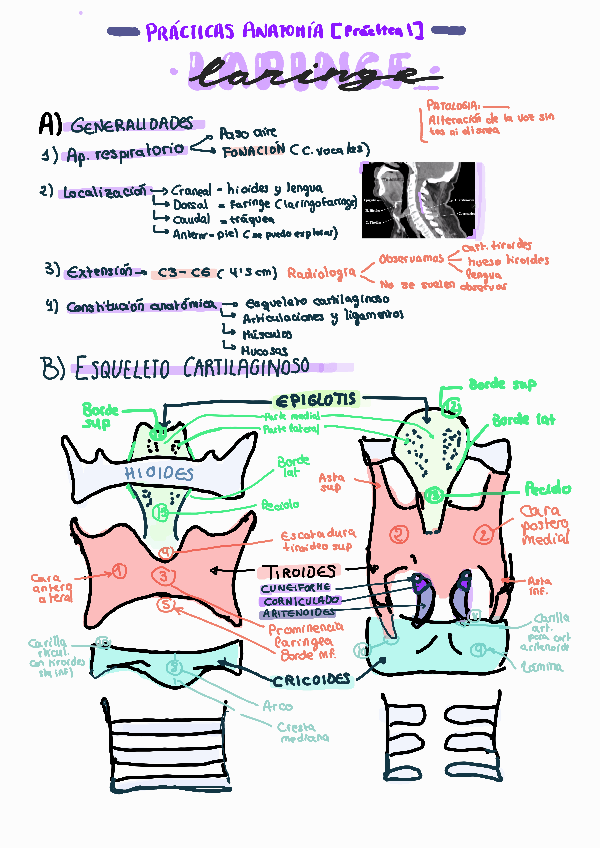 PRÁCTICAS ANATOMÍA [Práctica 1]
LARINGE
laringe
PATOLOGIA:
Alteración de la voz sin
tos ni disnea
A) GENERALIDADES
1) Ap. respiratorio
Paso aire
FONACIÓN (C. vocales)
2) Localización
Craneal = hioides y lengua
Dorsal = Faringe (laringofaringe)
Caudal = tráquea
Anterior = piel (se puede explorar)
3) Extensión → C3 - C6 (4'5 cm)
Radiología
Observamos
cart. tiroides
hueso hioides
lengua
No se suelen observar
4) Constitución anatómica
Esqueleto cartilaginoso
Articulaciones y ligamentos
Músculos
Mucosas
B) ESQUELETO CARTILAGINOSO
EPIGLOTIS
Borde sup
Parte medial
Parte lateral
Borde
sup
Borde lat
HIOIDES
Borde
lat
Asta
sup
Peciolo
Peciolo
Escotadura
tiroideo sup
Cara
postero
medial
TIROIDES
CUNEIFORME
CORNICULADO
ARITENOIDES
Cara
antero
lateral
Asta
inf.
Prominencia
laríngea
Borde inf.
Carilla
articul.
con tiroides
Carilla
art.
para art
aritenoids
Lámina
CRICOIDES
Arco
Cresta
mediana